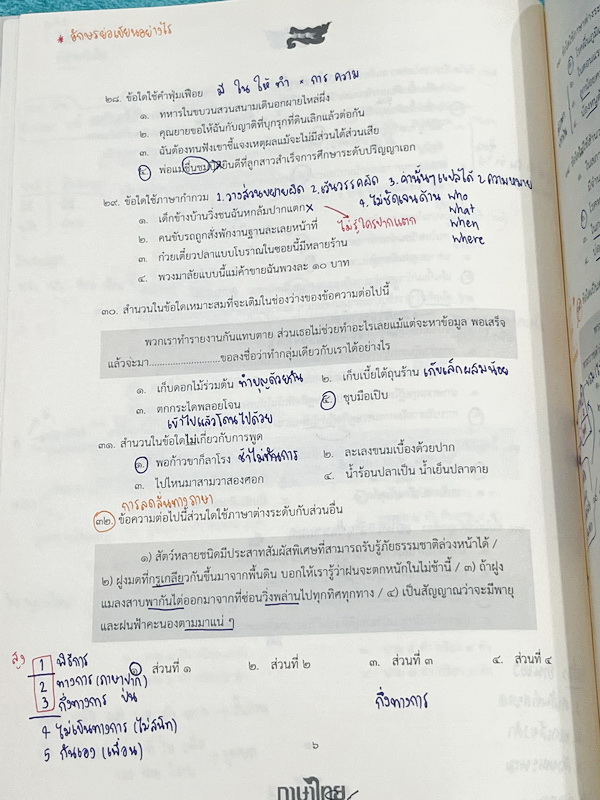 * อักษรย่อเขียนอย่างไร
๒๘. ข้อใดใช้คำฟุ่มเฟือย มี ใน ให้ ทำ × การ ความ
๑. ทหารในขบวนสวนสนามเดินอกผายไหล่ผึ่ง
๒. คุณยายขอให้ฉันกับญาติที่บุกรุกที่ดินเลิกแล้วต่อกัน
๓. ฉันต้องทนฟังเขาชี้แจงเหตุผลแม้จะไม่มีส่วนได้ส่วนเสีย
๔. พ่อแม่ชื่นชมยินดีที่ลูกสาวสำเร็จการศึกษาระดับปริญญาเอก
๒๙. ข้อใดใช้ภาษากำกวม 1.วางส่วนขยายผิด 2.เว้นวรรคผิด 3.คำนั้นๆแปลได้ 2 ความหมาย
4.ไม่ชัดเจนด้าน who
๑. เด็กข้างบ้านวิ่งชนฉันหกล้มปากแตก×
what
๒. คนขับรถถูกสั่งพักงานฐานละเลยหน้าที่ ไม่รู้ใครปากแตก
when
๓. ก๋วยเตี๋ยวปลาแบบโบราณในซอยนี้มีหลายร้าน
where
๔. พวงมาลัยแบบนี้แม่ค้าขายฉันพวงละ ๑๐ บาท
๓๐. สำนวนในข้อใดเหมาะสมที่จะเติมในช่องว่างของข้อความต่อไปนี้
พวกเราทำรายงานกันแทบตาย ส่วนเธอไม่ช่วยทำอะไรเลยแม้แต่จะหาข้อมูล พอเสร็จ
แล้วจะมา..........................ขอลงชื่อว่าทำกลุ่มเดียวกับเราได้อย่างไร
๑. เก็บดอกไม้ร่วมต้น ทำบุญด้วยกัน ๒. เก็บเบี้ยใต้ถุนร้าน เก็บเล็กผสมน้อย
๓. ตกกระไดพลอยโจน ๔. ชุบมือเปิบ
เข้าไปแล้วโดนไปด้วย
๓๑. สำนวนในข้อใดไม่เกี่ยวกับการพูด
๑. พอก้าวขาก็ลาโรง ช้าไม่ทันการ ๒. ละเลงขนมเบื้องด้วยปาก
๓. ไปไหนมาสามวาสองศอก ๔. น้ำร้อนปลาเป็น น้ำเย็นปลาตาย
การลดลั่นทางภาษา
๓๒. ข้อความต่อไปนี้ส่วนใดใช้ภาษาต่างระดับกับส่วนอื่น
๑) สัตว์หลายชนิดมีประสาทสัมผัสพิเศษที่สามารถรับรู้ภัยธรรมชาติล่วงหน้าได้ /
๒) ฝูงมดที่กรูเกลียวกันขึ้นมาจากพื้นดิน บอกให้เรารู้ว่าฝนจะตกหนักในไม่ช้านี้ / ๓) ถ้าฝูง
แมลงสาบพากันไต่ออกมาจากที่ซ่อนวิ่งพล่านไปทุกทิศทุกทาง / ๔) เป็นสัญญาณว่าจะมีพายุ
และฝนฟ้าคะนองตามมาแน่ ๆ
๑. ส่วนที่ ๑ ๒. ส่วนที่ ๒ ๓. ส่วนที่ ๓ ๔. ส่วนที่ ๔
สูง
1 พิธีการ
2 ทางการ (ภาษาปาก)
3 กึ่งทางการ ปน
กึ่งทางการ
4 ไม่เป็นทางการ (ไม่สนิท)
5 กันเอง (เพื่อน)
๖
ภาษาไทย